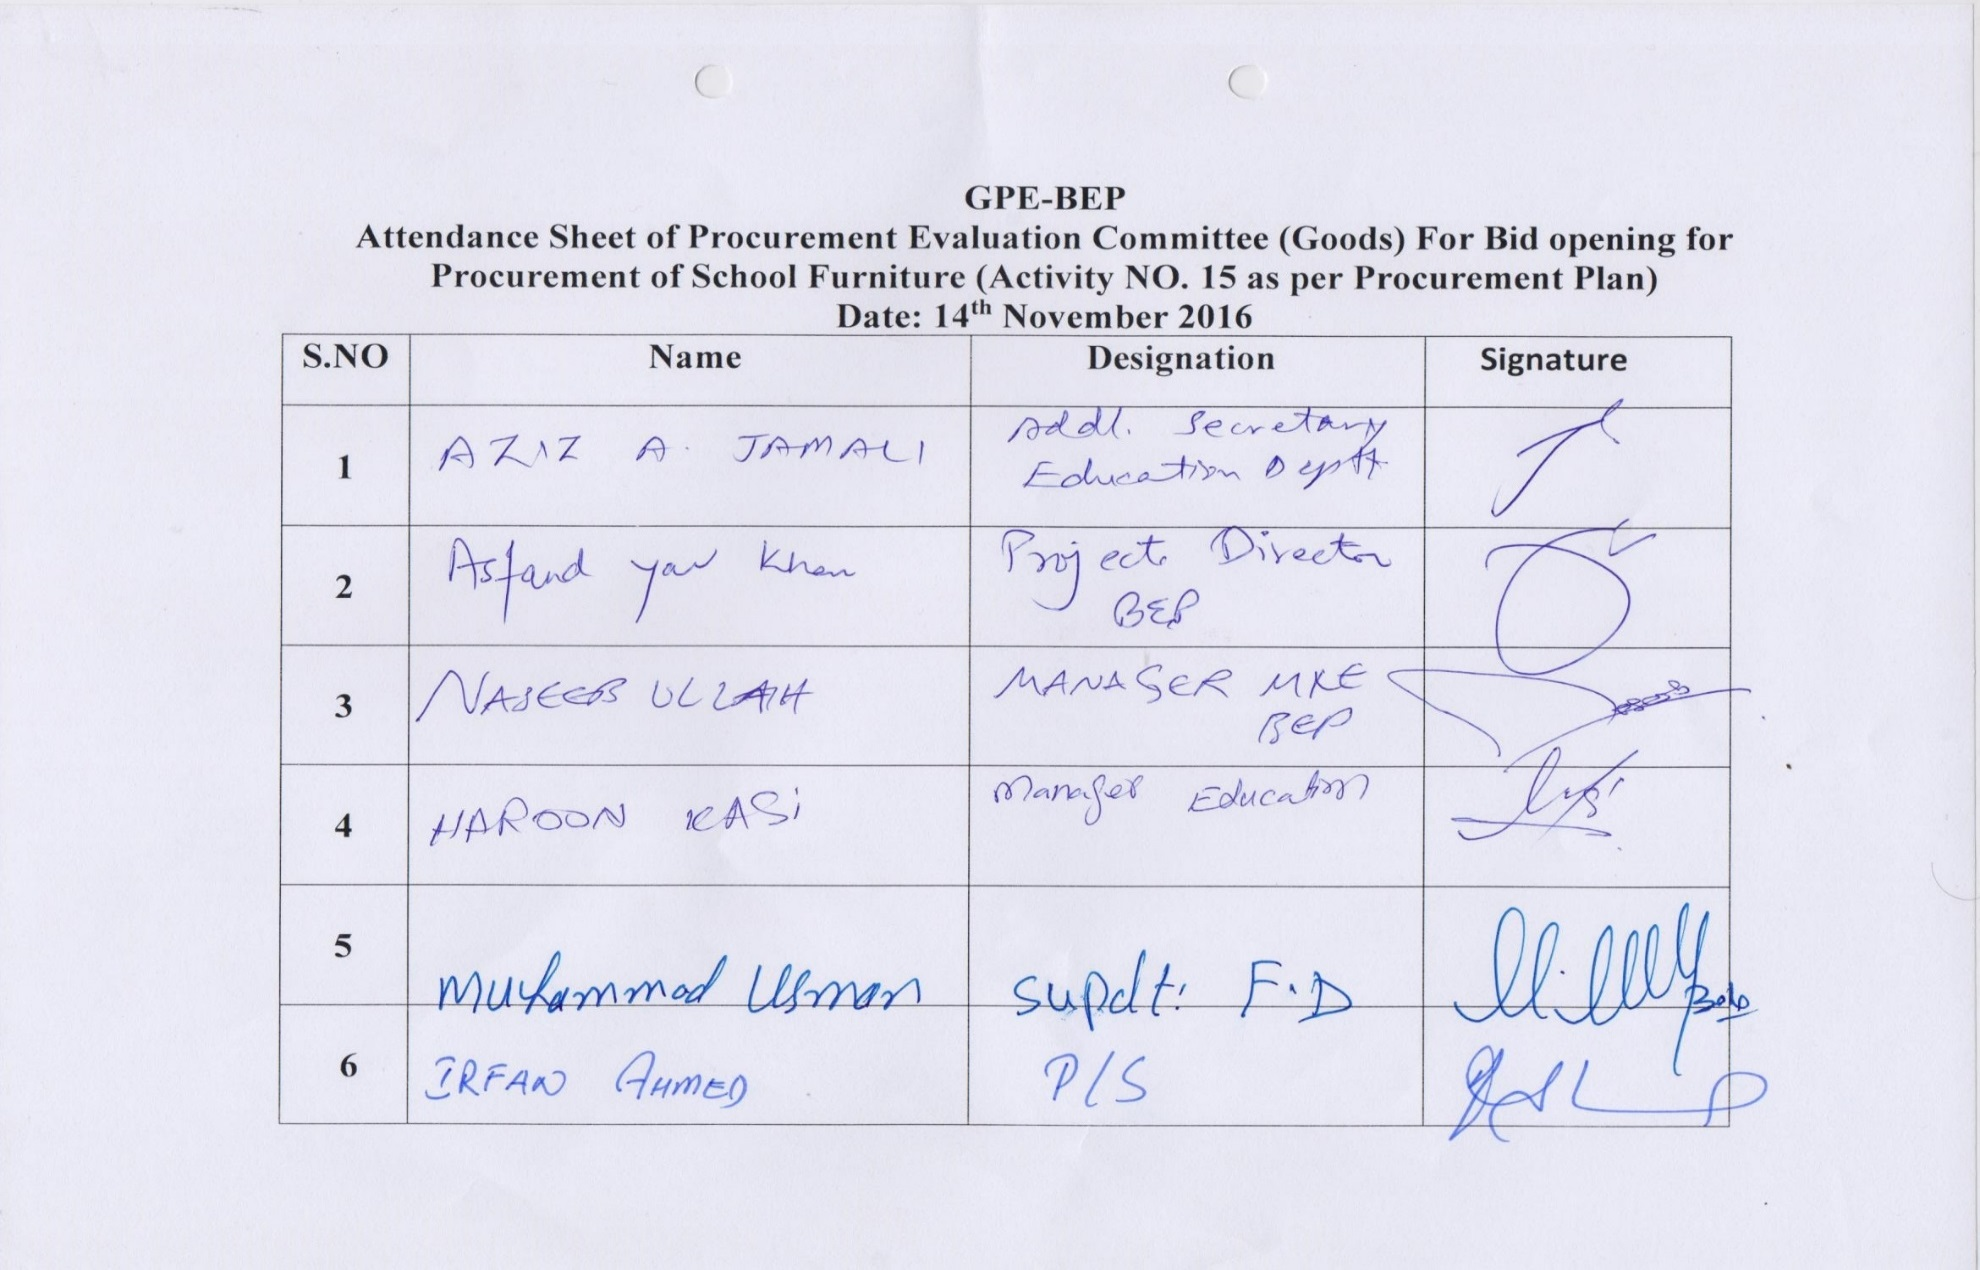 GPE-BEP
Attendance Sheet of Procurement Evaluation Committee (Goods) For Bid opening for
Procurement of School Furniture (Activity NO. 15 as per Procurement Plan)
Date: 14th November 2016
S.NO Name Designation Signature
1 AZIZ A. JAMALI Addl. Secretary
Education Deptt
2 Asfand yar Khan Project Director
BEP
3 NASEEB ULLAH MANAGER M&E
BEP
4 HAROON KASi Manager Education
5 Muhammad Usman Supdt: F.D
6 IRFAN AHMED P/S